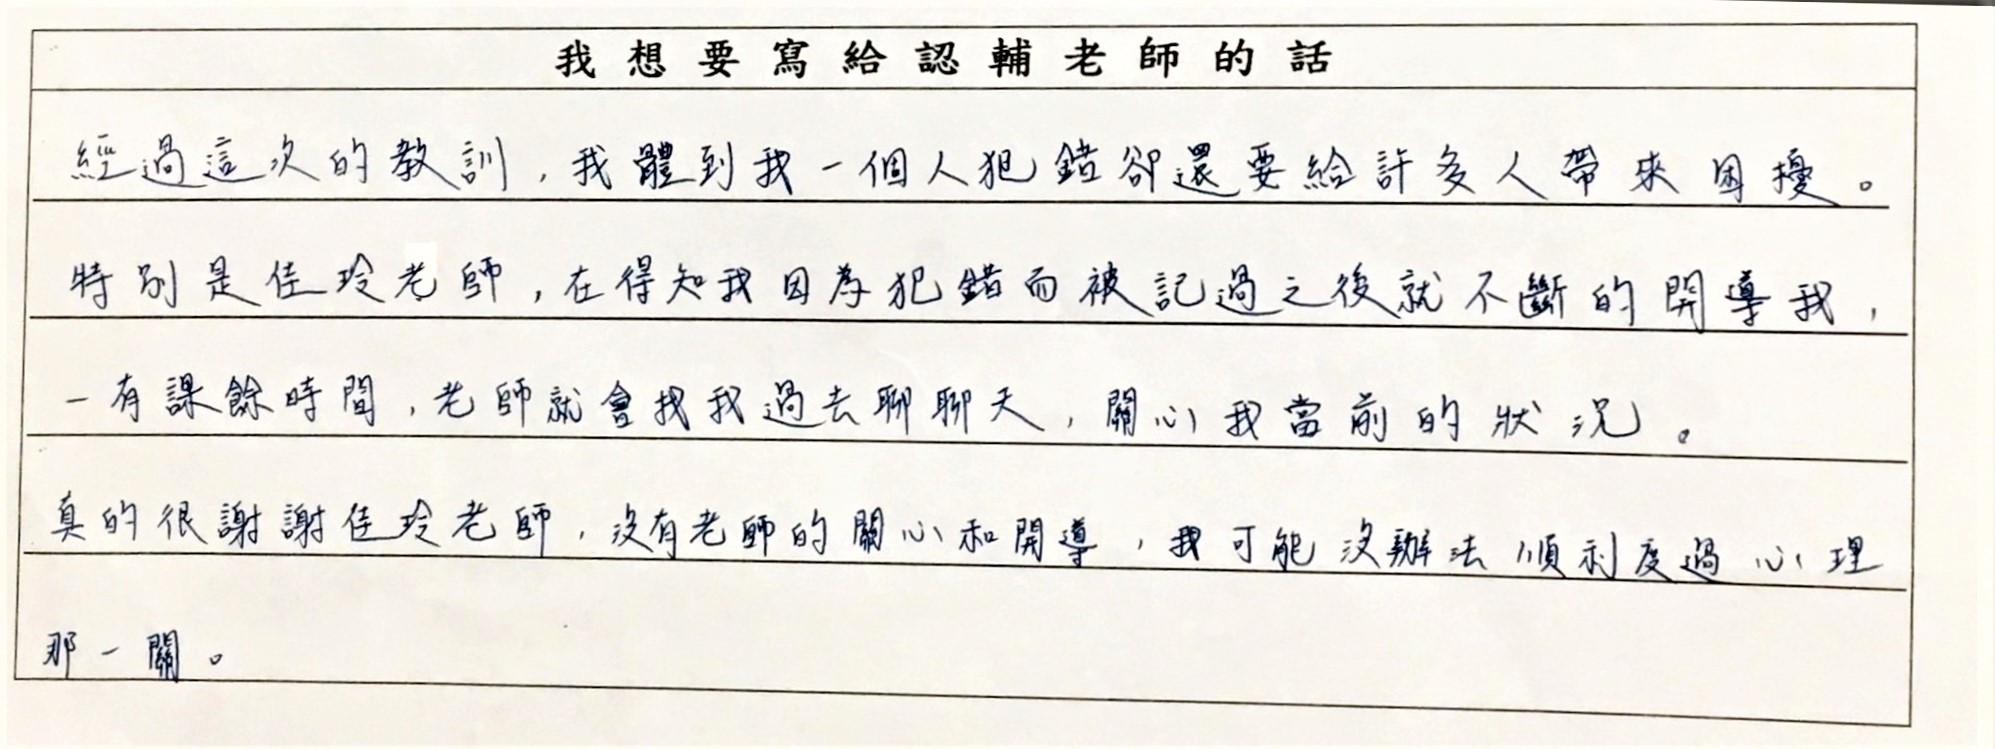 我想要寫給認輔老師的話
經過這次的教訓，我體到我一個人犯錯卻還要給許多人帶來困擾。
特別是佳玲老師，在得知我因為犯錯而被記過之後就不斷的開導我，
一有課餘時間，老師就會找我過去聊聊天，關心我當前的狀況。
真的很謝謝佳玲老師，沒有老師的關心和開導，我可能沒辦法順利度過心理
那一關。